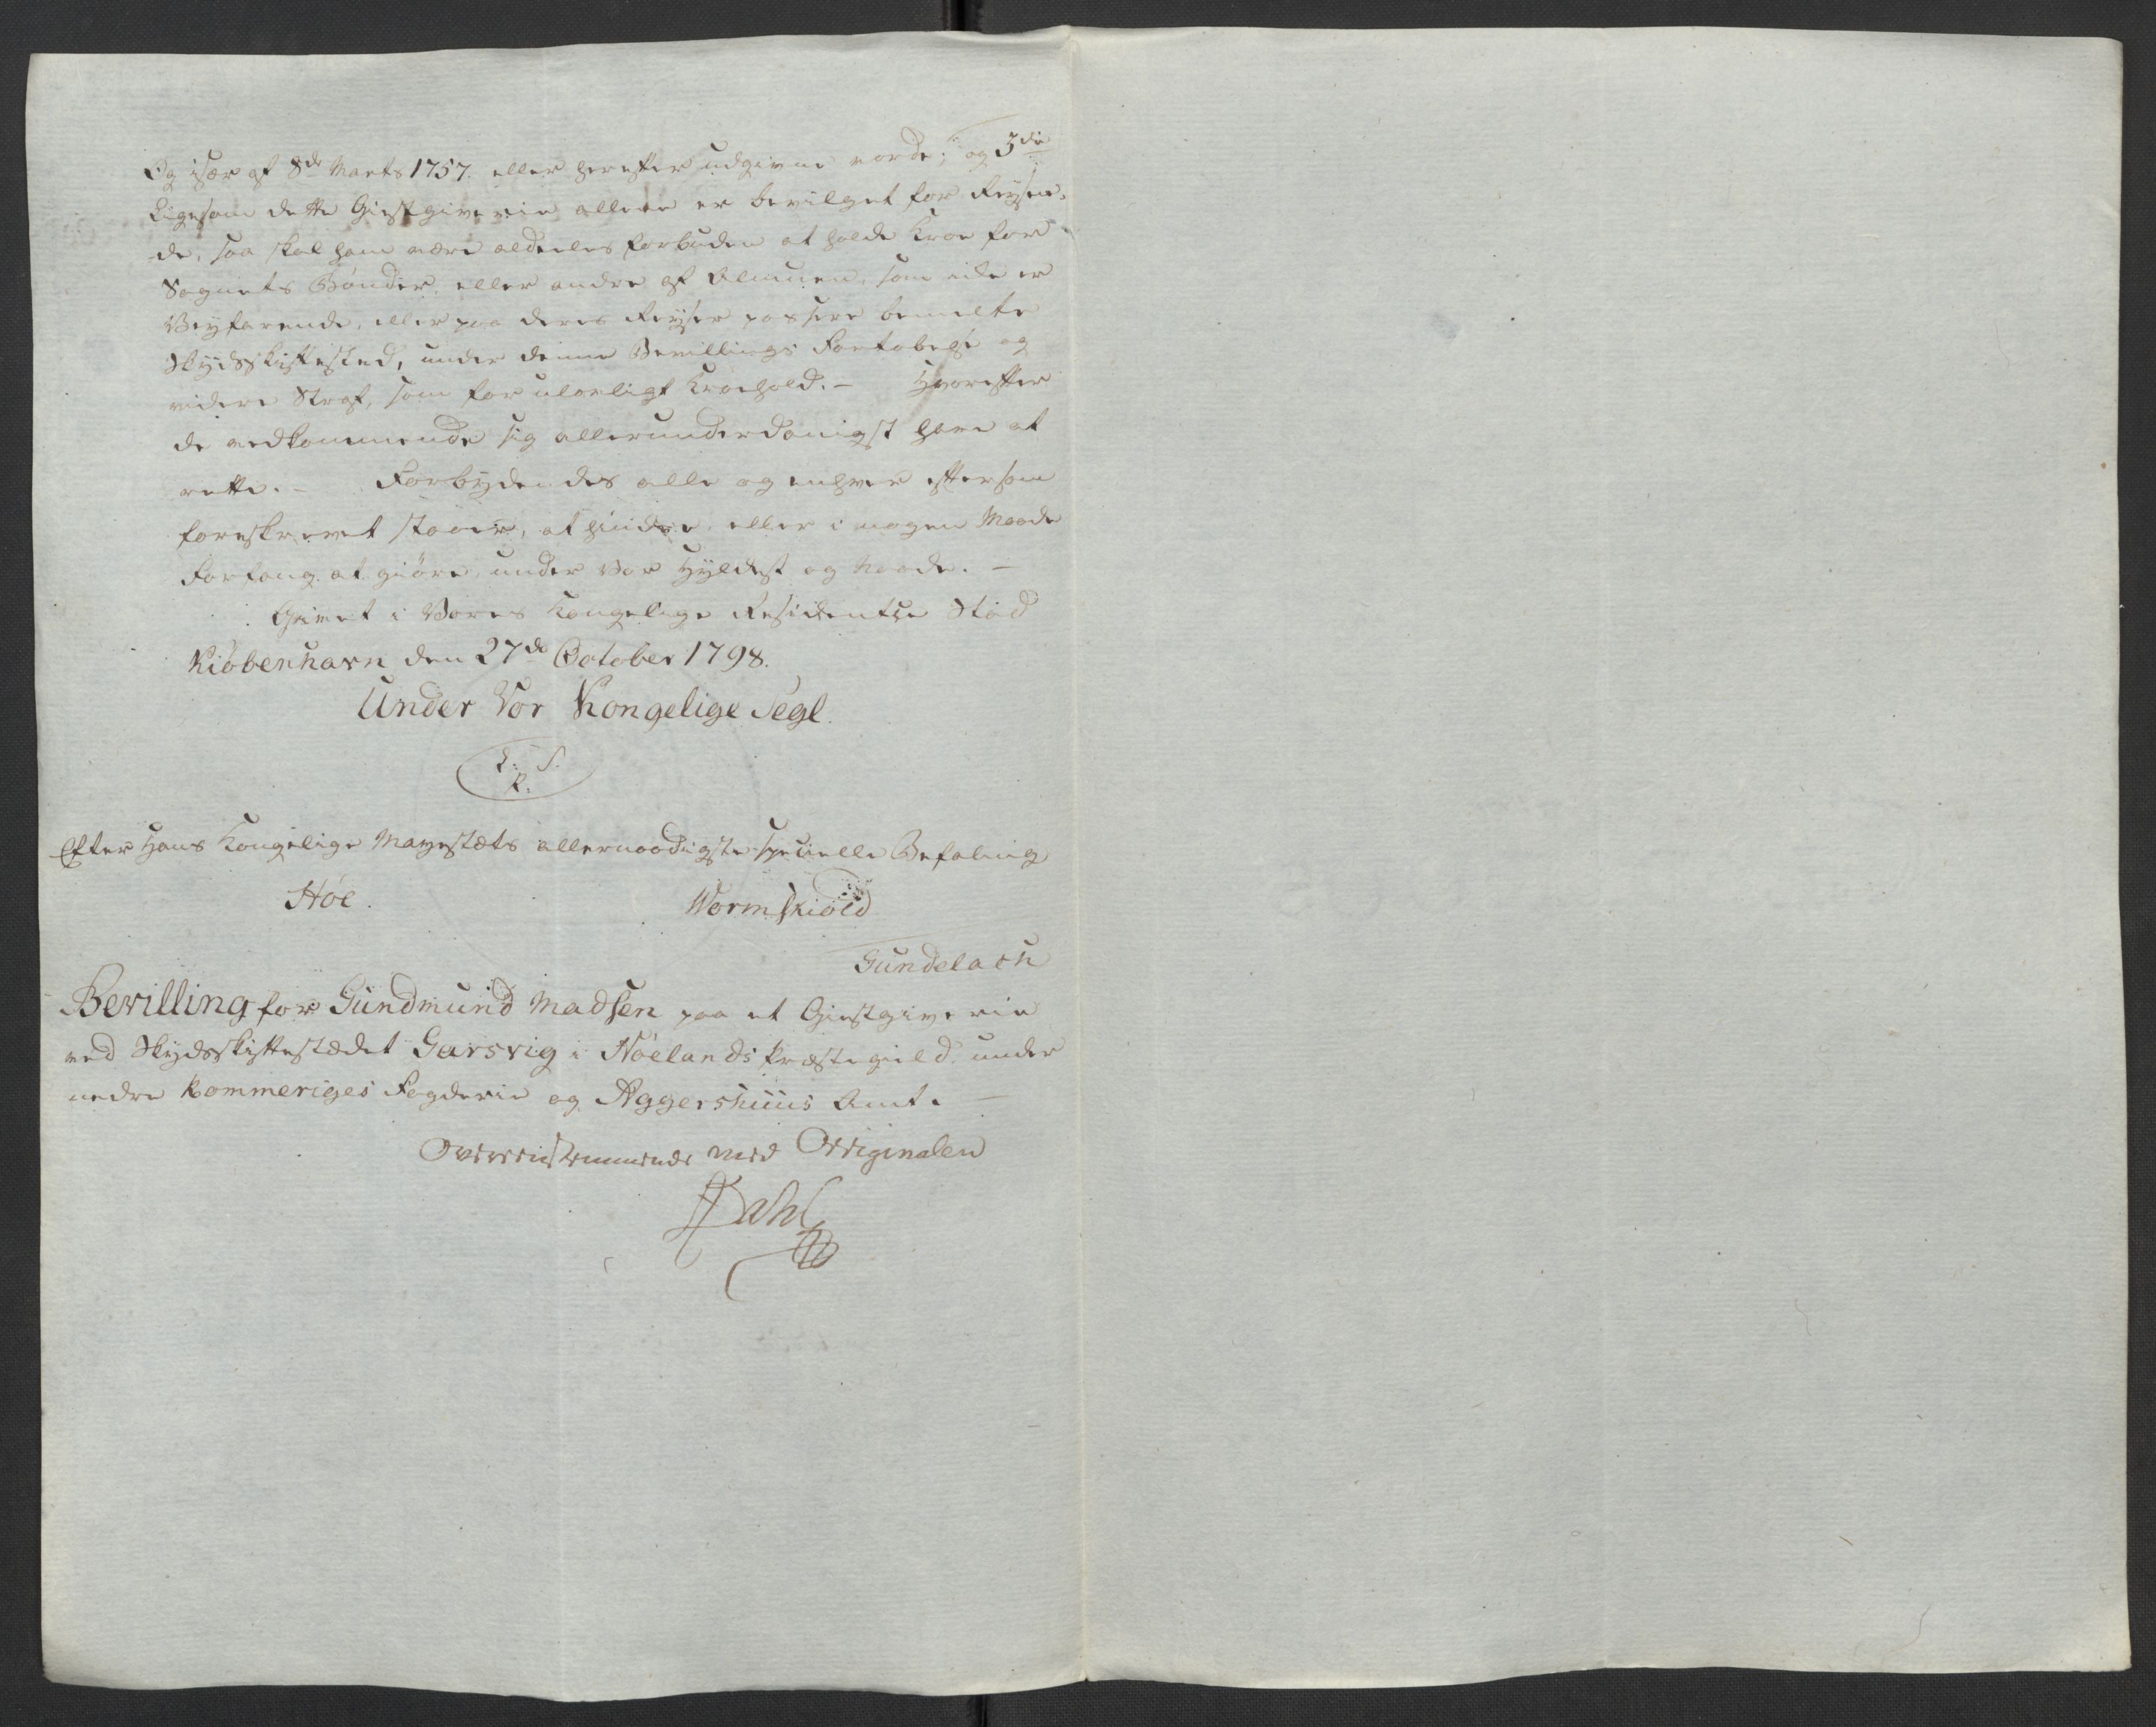 Og især af 8de Marts 1757. eller herefter udgivne vorde; og 3die
Ligesom dette Giestgiverie allene er bevilget for Reysen-
de, saa skal ham være aldeeles forbuden at holde Kroe for
Sognets Bønder, eller andre af Almuen, som icke er
Veyfarende, eller paa deres Reyser passere bemelte
Skydsskiftested, under denne Bevillings Fortabelse og
videre Straf, som for ulovligt Kroehold. – Hvorefter
de vedkommende sig allerunderdanigst have at
rette. – Forbydendes alle og enhver eftersom
foreskrevet staaer, at hindre, eller i nogen Maade
Forfang at giøre, under Vor Hyldest og Naade. –
Givet i Vores Kongelige Residentze Stad
Kiøbenhavn den 27de October 1798.
Under Vor Kongelige Segl.
L. S.
R.
Efter Hans Kongelige Mayestæts allernaadigste specielle Befaling
Høe.
Wormskiold
Gundelach
Bevilling for Gundmund Madsen paa et Giestgiverie
ved Skydsskiftestædet Garsvig i Høelands Præstegield, under
nedre Rommeriges Fogderie og Aggershuus Amt. –
Overeenstemmende med Originalen
Dahl